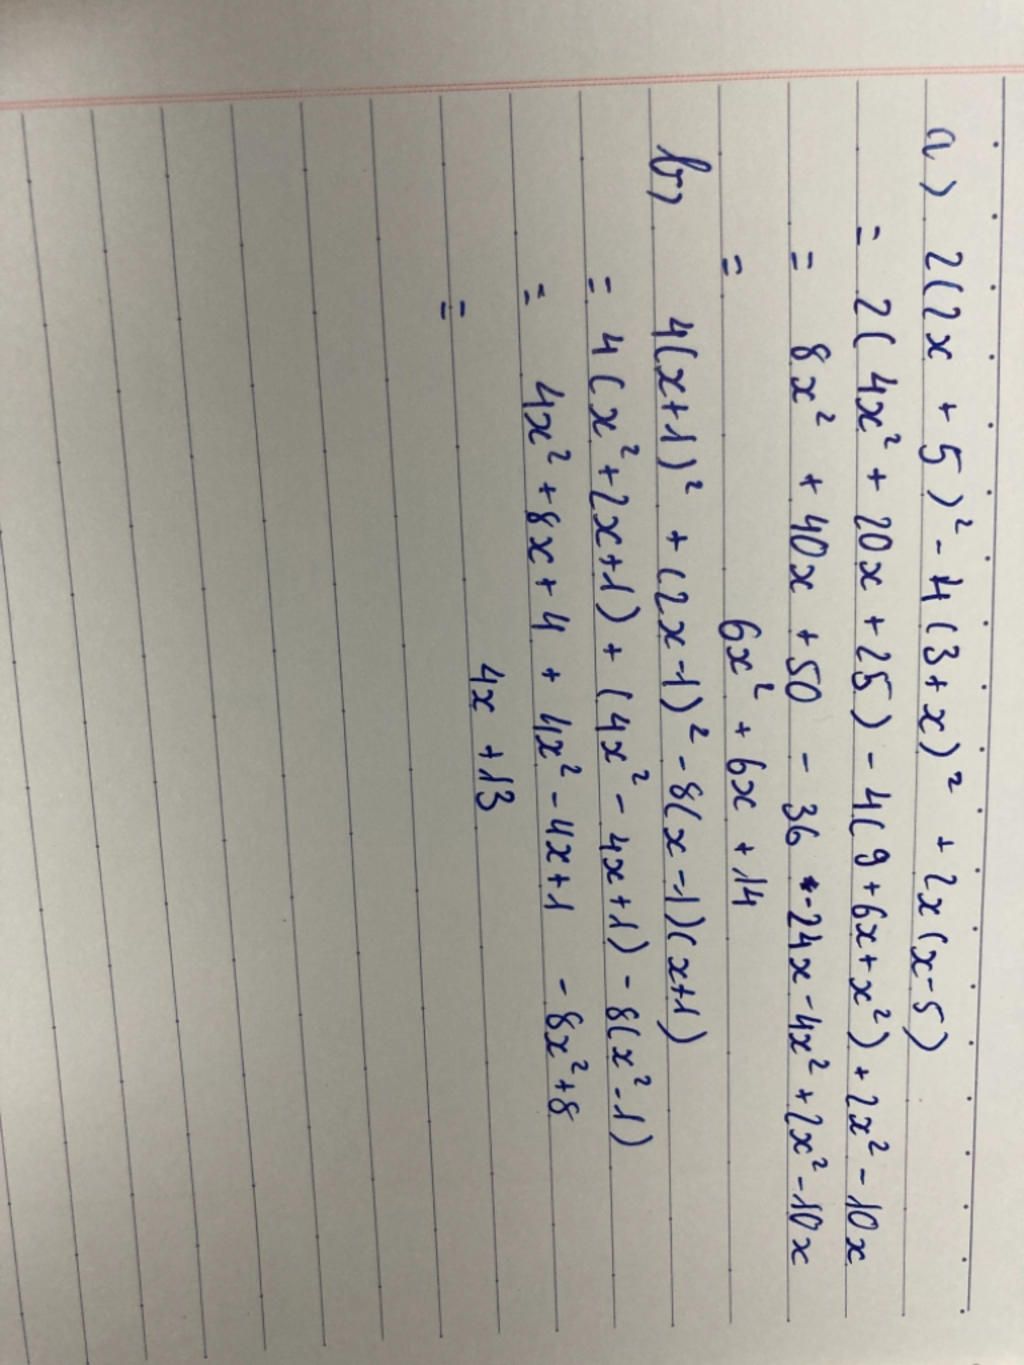 a) 2(2x + 5)² - 4(3+x)² + 2x(x-5)
= 2(4x² + 20x + 25) - 4(9 + 6x + x²) + 2x² - 10x
= 8x² + 40x + 50 - 36 - 24x - 4x² + 2x² - 10x
= 6x² + 6x + 14
b) 4(x+1)² + (2x-1)² - 8(x-1)(x+1)
= 4(x² + 2x + 1) + (4x² - 4x + 1) - 8(x² - 1)
= 4x² + 8x + 4 + 4x² - 4x + 1 - 8x² + 8
= 4x + 13